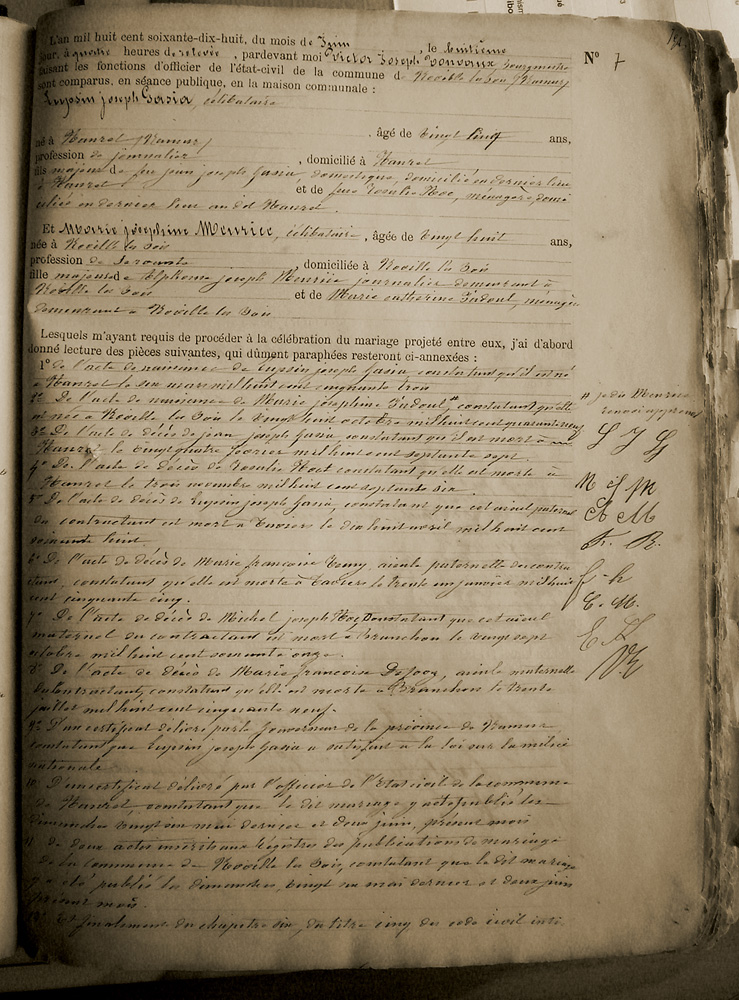 L'an mil huit cent soixante-dix-huit, du mois de Juin, le huitième
jour, à quatre heures de relevée, pardevant moi Victor Joseph Bourgmestre
faisant les fonctions d'officier de l'état-civil de la commune de Noville les Bois (Namur)
sont comparus, en séance publique, en la maison communale :
Lupsin joseph Gasia, célibataire
né à Hanret (Namur), âgé de vingt cinq ans,
profession de journalier, domicilié à Hanret
fils majeur de feu jean joseph Gasia, domestique, domicilié en dernier lieu
à Hanret, et de feue Rosalie Hoc, ménagère, domi
ciliée en dernier lieu au dit Hanret.
Et Marie joséphine Meurice, célibataire, âgée de vingt huit ans,
née à Noville les Bois
profession de servante, domiciliée à Noville les Bois
fille majeure de Alphonse joseph Meurice journalier demeurant à
Noville les Bois et de Marie catherine Fadoul, ménagère
demeurant à Noville les Bois
Lesquels m'ayant requis de procéder à la célébration du mariage projeté entre eux, j'ai d'abord
donné lecture des pièces suivantes, qui dûment paraphées resteront ci-annexées :
1° de l'acte de naissance de Lupsin joseph Gasia constatant qu'il est né
à Hanret le six mars mil huit cent cinquante trois
2° De l'acte de naissance de Marie joséphine Fadoul #, constatant qu'elle
est née à Noville les Bois le vingt huit octobre mil huit cent quarante neuf
3° De l'acte de décès de jean joseph Gasia, constatant qu'il est mort à
Hanret le vingt quatre janvier mil huit cent septante sept.
4° De l'acte de décès de Rosalie Hoct constatant qu'elle est morte à
Hanret le trois novembre mil huit cent septante six.
5° De l'acte de décès de Lupsin joseph Gasia, constatant que cet aïeul paternel
du contractant est mort à Taviers le dix huit avril mil huit cent
soixante huit.
6° De l'acte de décès de Marie françoise aïeule paternelle du contrac
tant, constatant qu'elle est morte à Taviers le trente un janvier mil huit
cent cinquante cinq.
7° De l'acte de décès de Michel joseph Hoc constatant que cet aïeul
maternel du contractant est mort à Branchon le vingt sept
octobre mil huit cent soixante onze.
8° De l'acte de décès de Marie françoise aïeule maternelle
du contractant, constatant qu'elle est morte à Branchon le trente
juillet mil huit cent cinquante neuf.
9° D'un certificat délivré par le Gouverneur de la province de Namur
constatant que Lupsin joseph Gasia a satisfait à la loi sur la milice
nationale
10° D'un certificat délivré par l'officier de l'Etat civil de la commune
de Hanret, constatant que le dit mariage y a été publié les
dimanches vingt six mai dernier et deux juin, présent mois
11° de deux actes inscrits aux Registres des publications de mariage
de la commune de Noville les Bois, constatant que le dit mariage
y a été publié les dimanches, vingt six mai dernier et deux juin
présent mois.
12° Et finalement du chapitre six, du titre cinq du code civil inti
N° 7
# je dis Meurice
renvoi approuvé
L J G
M J M
A M
R. R.
J. h
C. M.